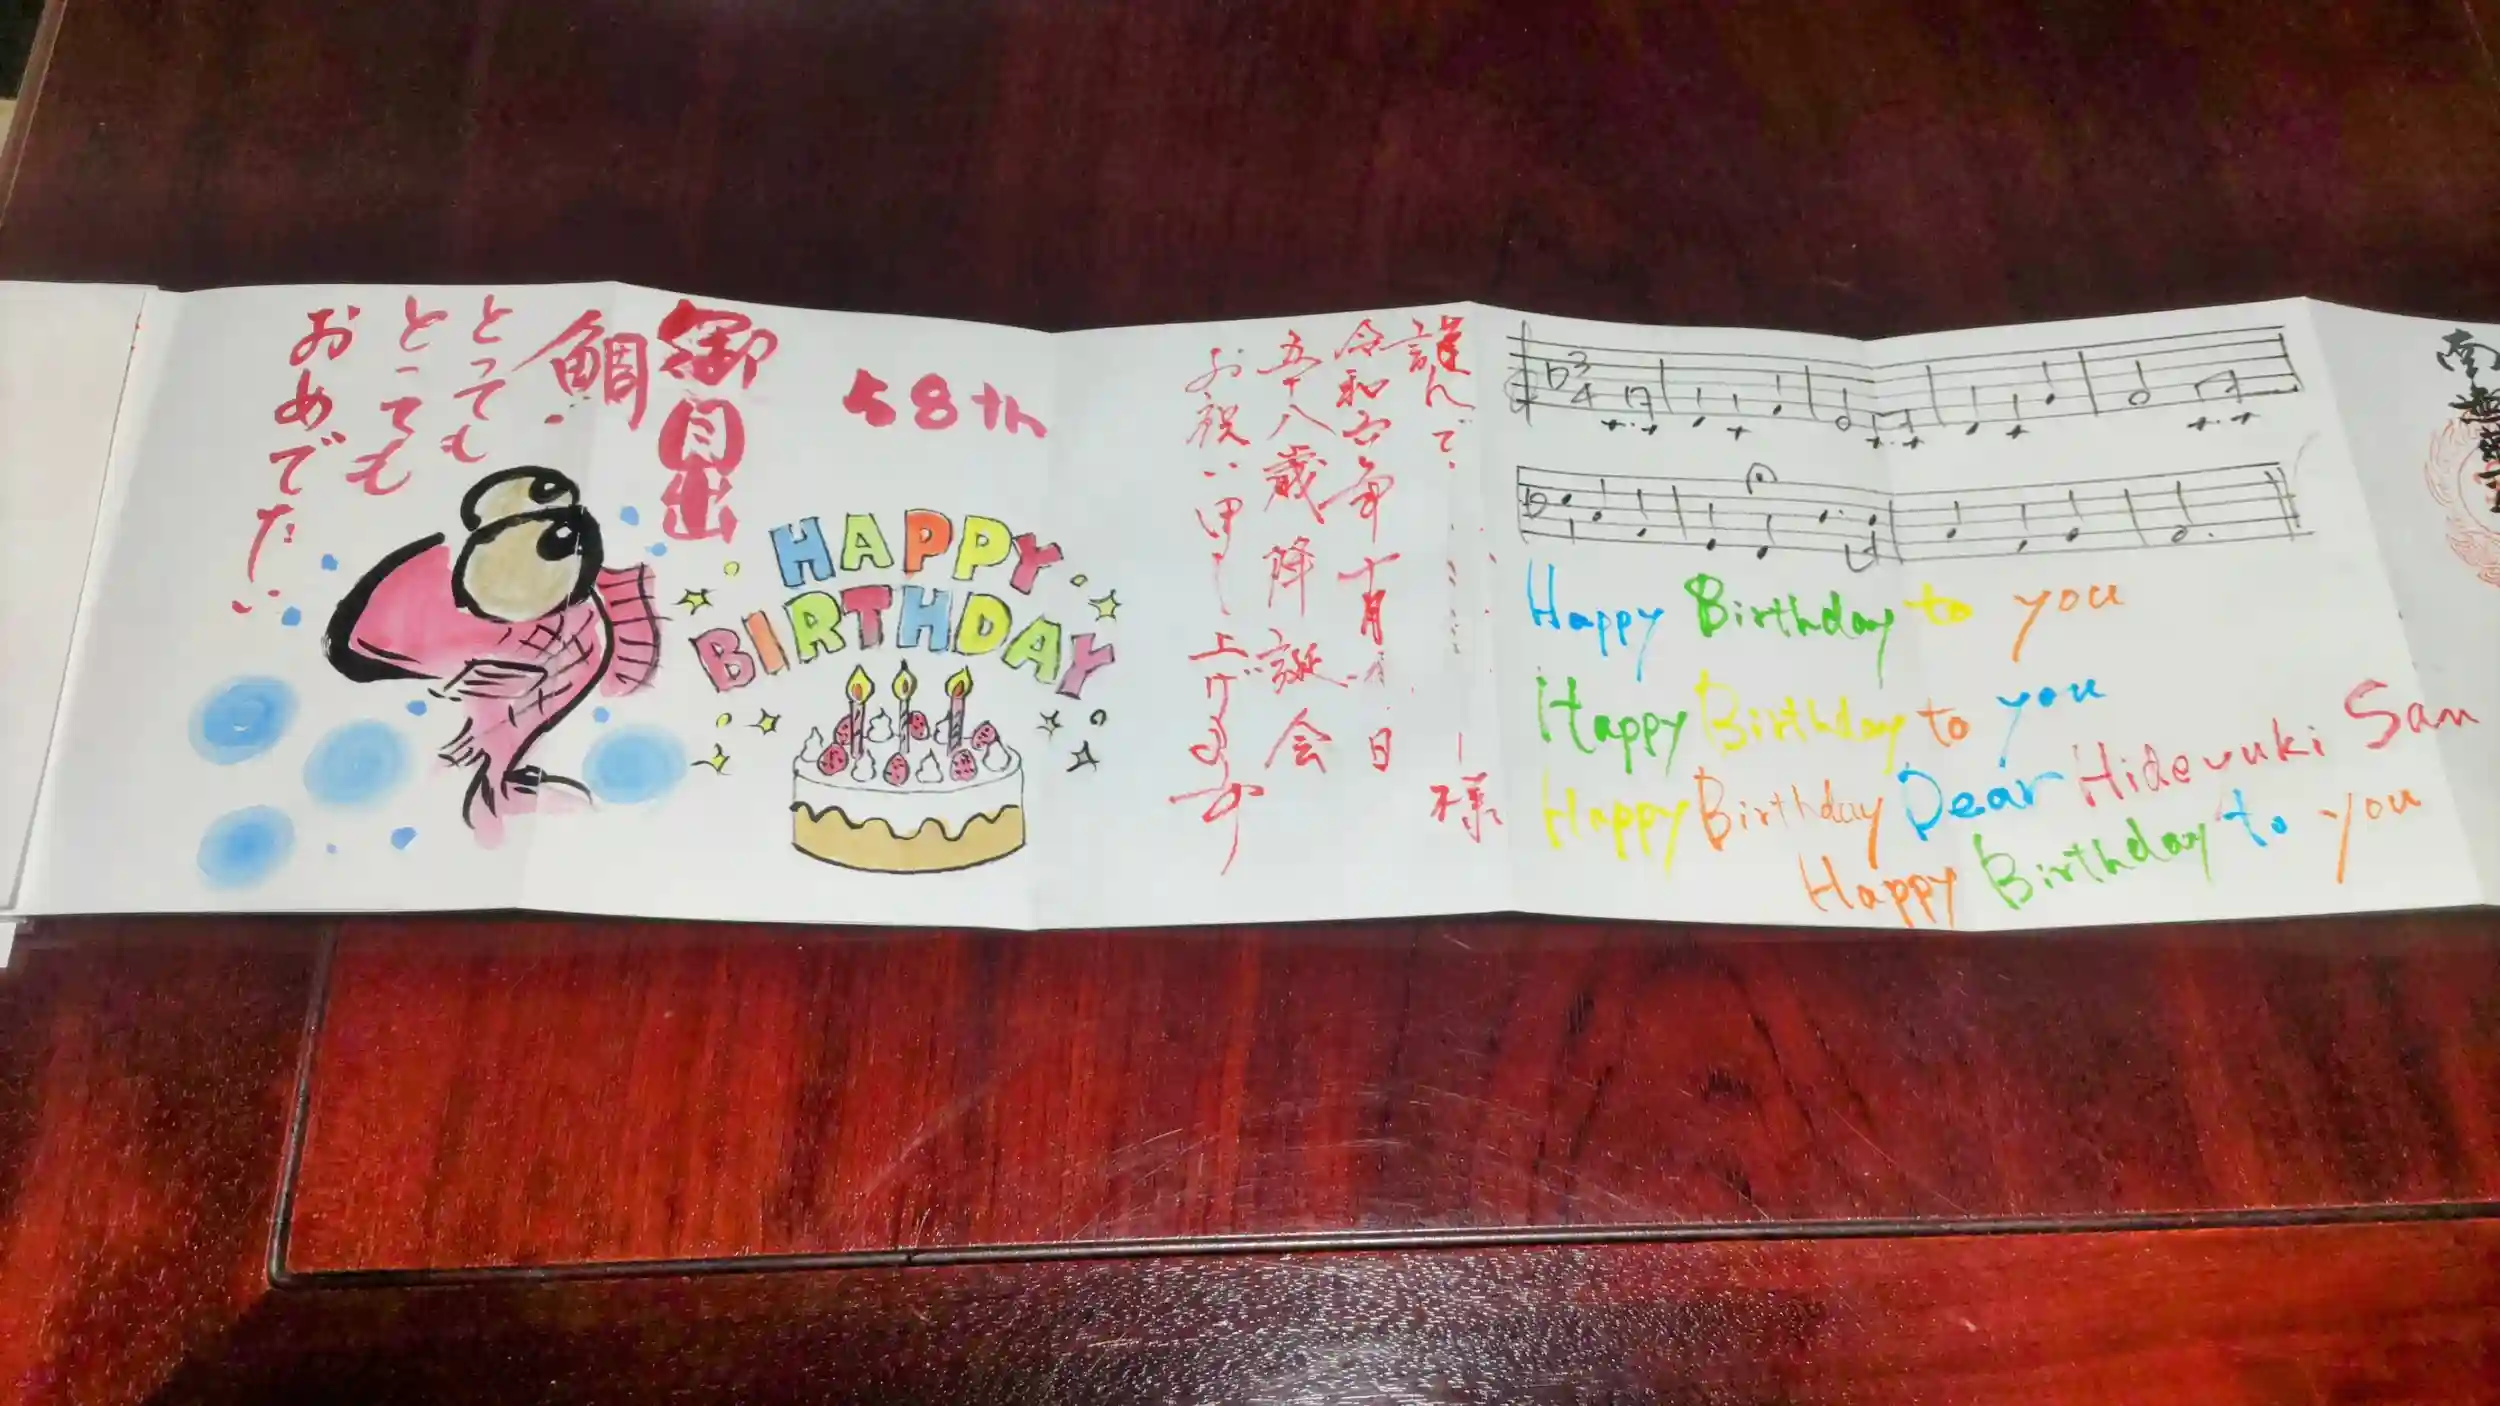 南無
Happy Birthday to you
Happy Birthday to you
Happy Birthday Dear Hideyuki San
Happy Birthday to you
謹んで
様
令和六年十月
日
五十八歳降誕会
お祝い申し上げます
58th
HAPPY
BIRTHDAY
御目出
鯛
とっても
とっても
おめでたい